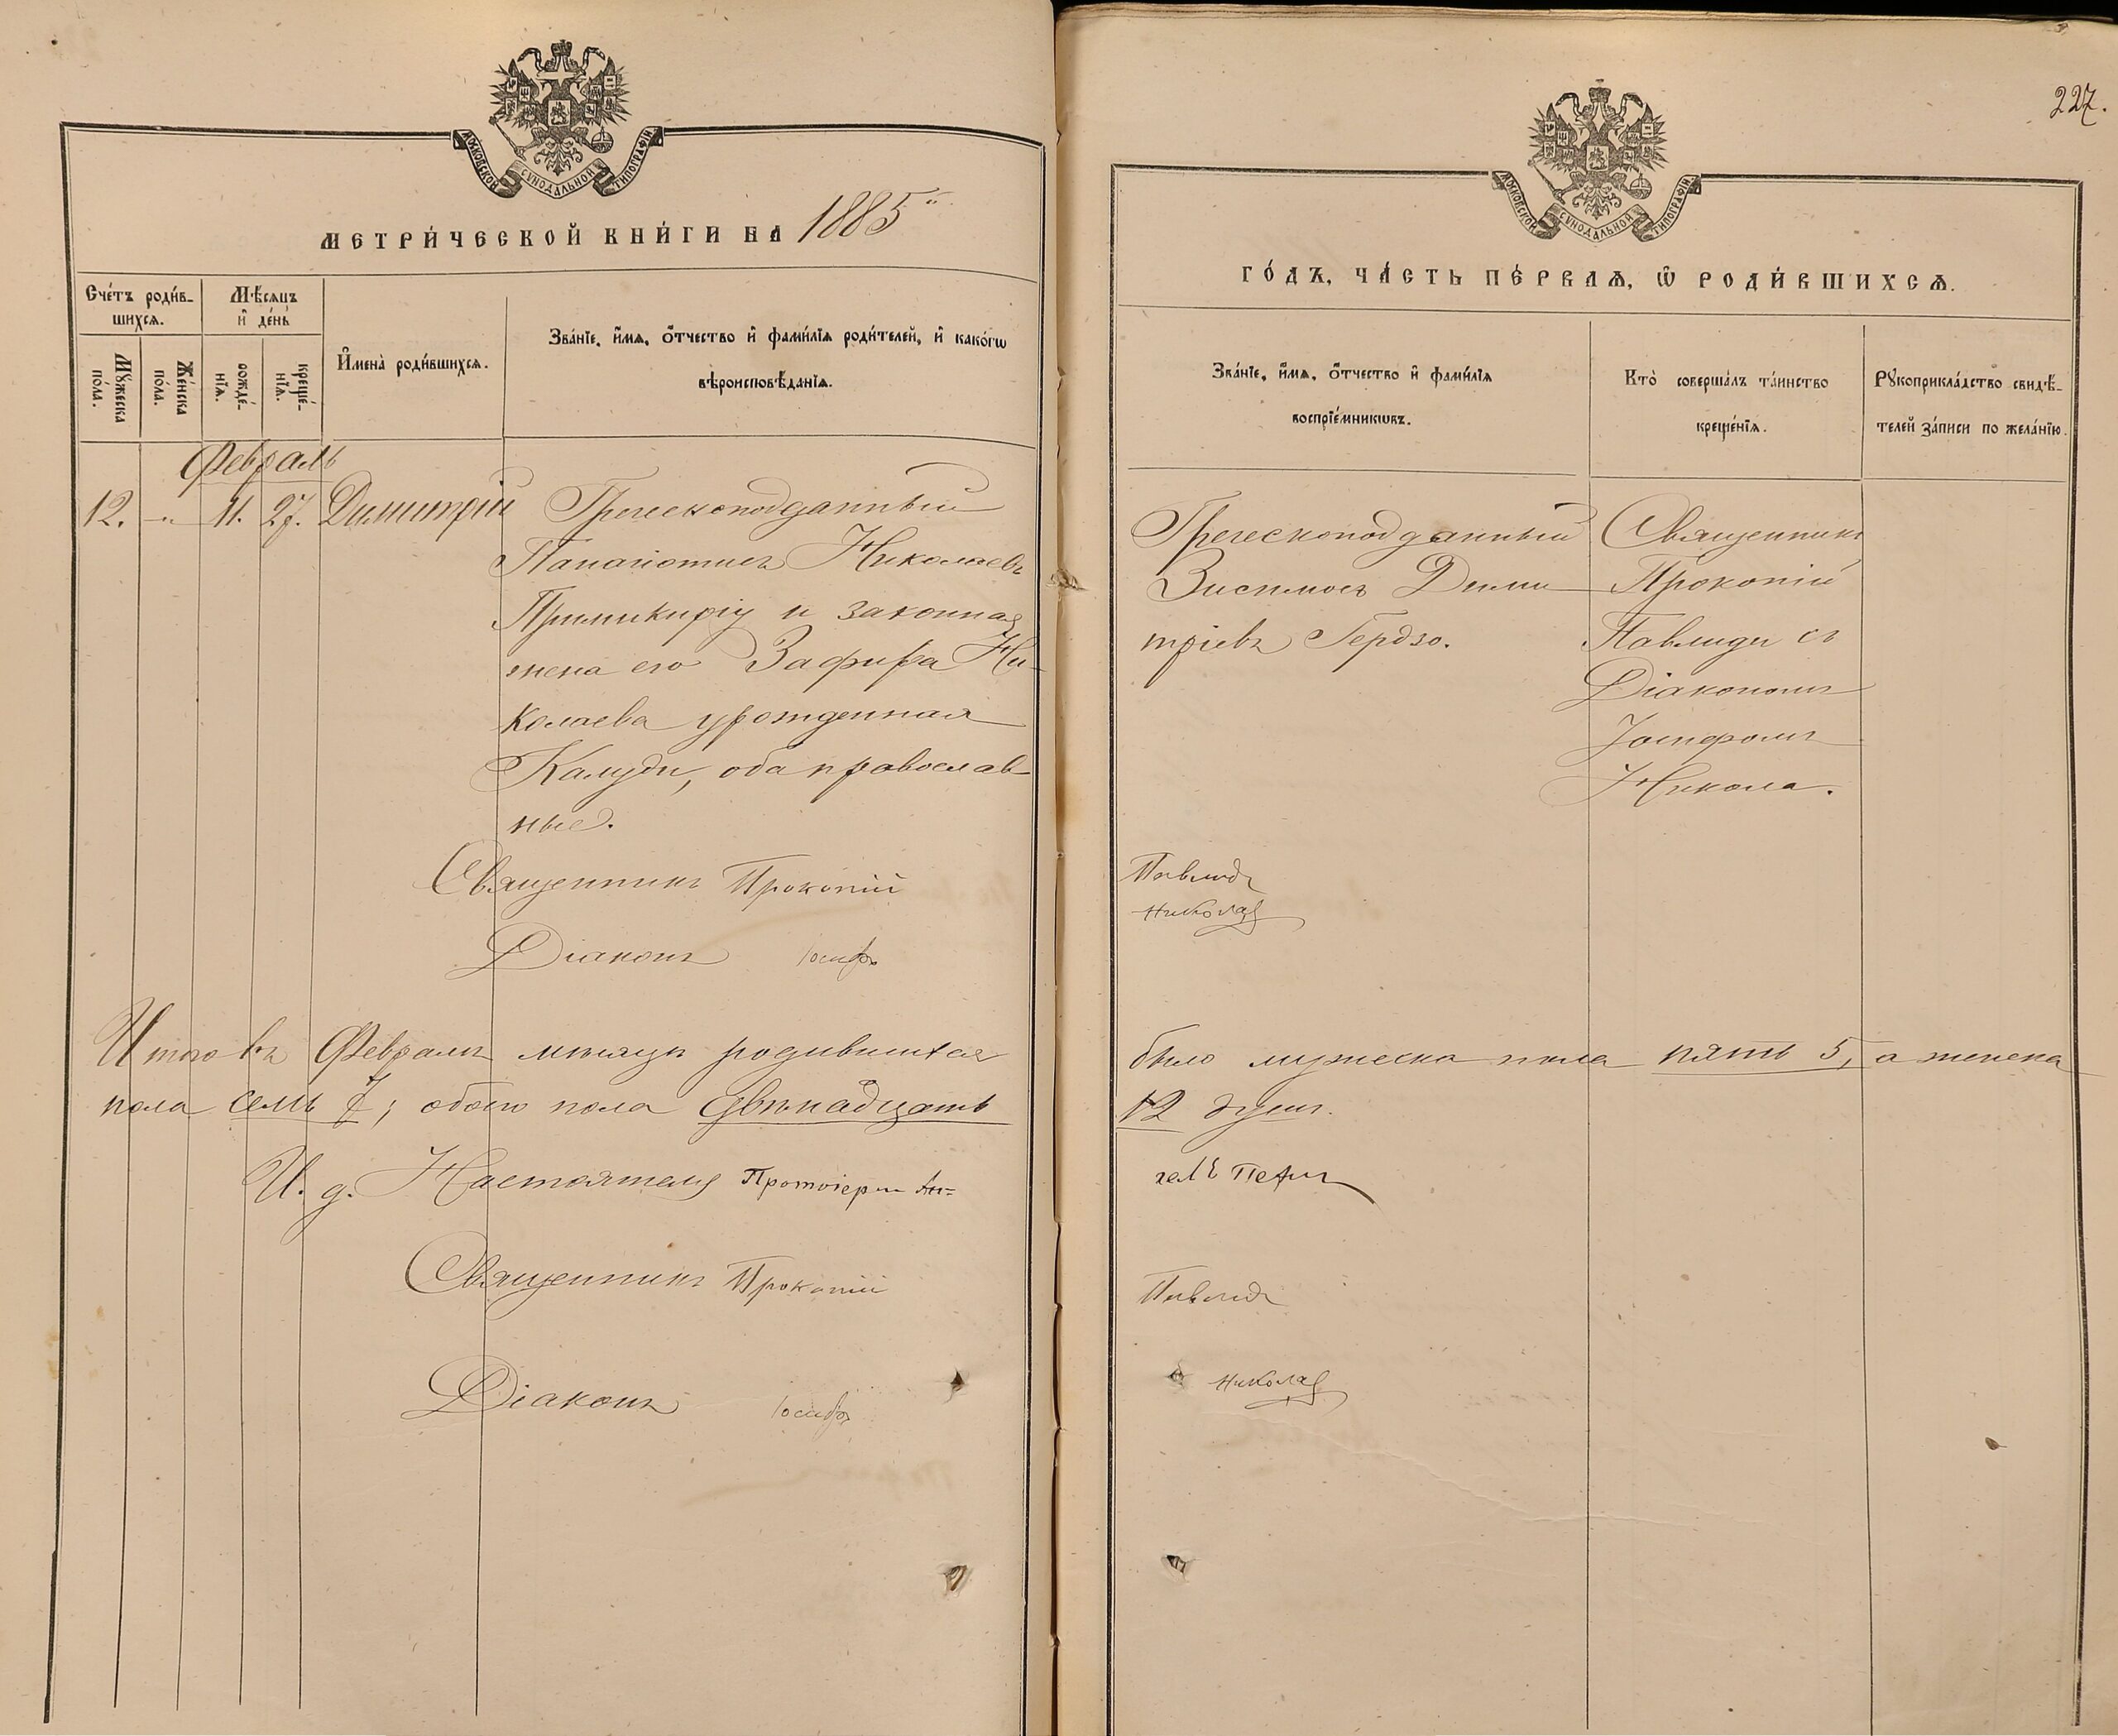 МОСКОВСКОЙ СѴНОДАЛЬНОЙ ТИПОГРАФІИ
МЕТРИ́ЧЕСКОЙ КНИ́ГИ НА 1885
Сче́тъ роди́в-
шихсѧ.
Мѣ́сѧцъ
и҆ де́нь
Мꙋ́жеска
по́ла.
Же́нска
по́ла.
рожде́-
нїѧ.
креще́-
нїѧ.
И҆мена̀ роди́вшихсѧ.
Зва́нїе, и҆́мѧ, ѻ҆́тчество и҆ фами́лїѧ роди́телей, и҆ како́гѡ
вѣроисповѣ́данїѧ.
Февраль
12. -"- 11. 27. Димитрій
Греческоподданный
Панаіотисъ Николаевъ
Примикирiу и законная
жена его Зафира Ни-
колаева урожденная
Калуди, оба православ-
ные.
Священникъ Прокопій
Діаконъ Іосифъ
Итого въ Февралѣ мѣсяцѣ родившихся
пола семь 7; обоего пола двѣнадцать
И. д. Настоятеля Протоіерей Ан=
Священникъ Прокопій
Діаконъ Іосифъ
227.
МОСКОВСКОЙ СѴНОДАЛЬНОЙ ТИПОГРАФІИ
ГО́ДЪ, ЧА́СТЬ ПЕ́РВАѦ, Ѡ҆ РОДИ́ВШИХСѦ.
Зва́нїе, и҆́мѧ, ѻ҆́тчество и҆ фами́лїѧ
воспрїе́мникѡвъ.
Кто̀ соверша́лъ та́инство
креще́нїѧ.
Рꙋкоприкла́дство свидѣ́-
телей за́писи по жела́нїю.
Греческоподданный
Зисимосъ Дими
тріевъ Гердзо.
Священникъ
Прокопій
Павлиди съ
Діакономъ
Іосифомъ
Никола.
Павлиди
Николая
было мужеска пола пять 5, а женска
12 душъ.
гелъ Пефан
Павлиди
Николая